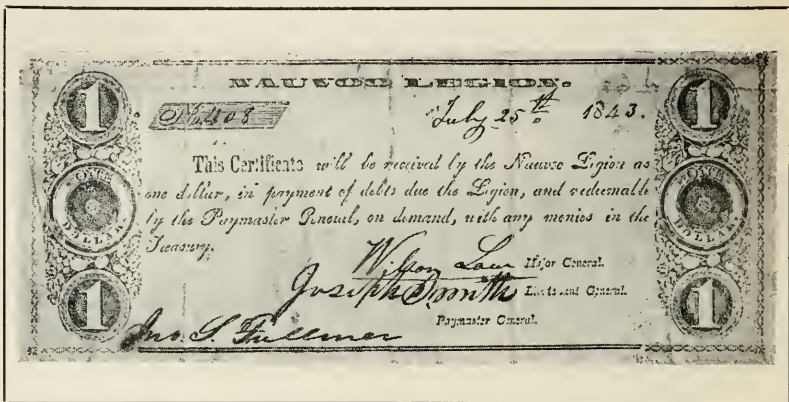 NAUVOO LEGION.
No. 408 July 25th 1843.
This Certificate will be received by the Nauvoo Legion as
one dollar, in payment of debts due the Legion, and redeemable
by the Paymaster General, on demand, with any monies in the
Treasury.
Wilson Law Major General.
Joseph Smith Lieutenant General.
Paymaster General.
Jno. S. Fullmer
1
ONE
DOLLAR.
1
1
ONE
DOLLAR.
1